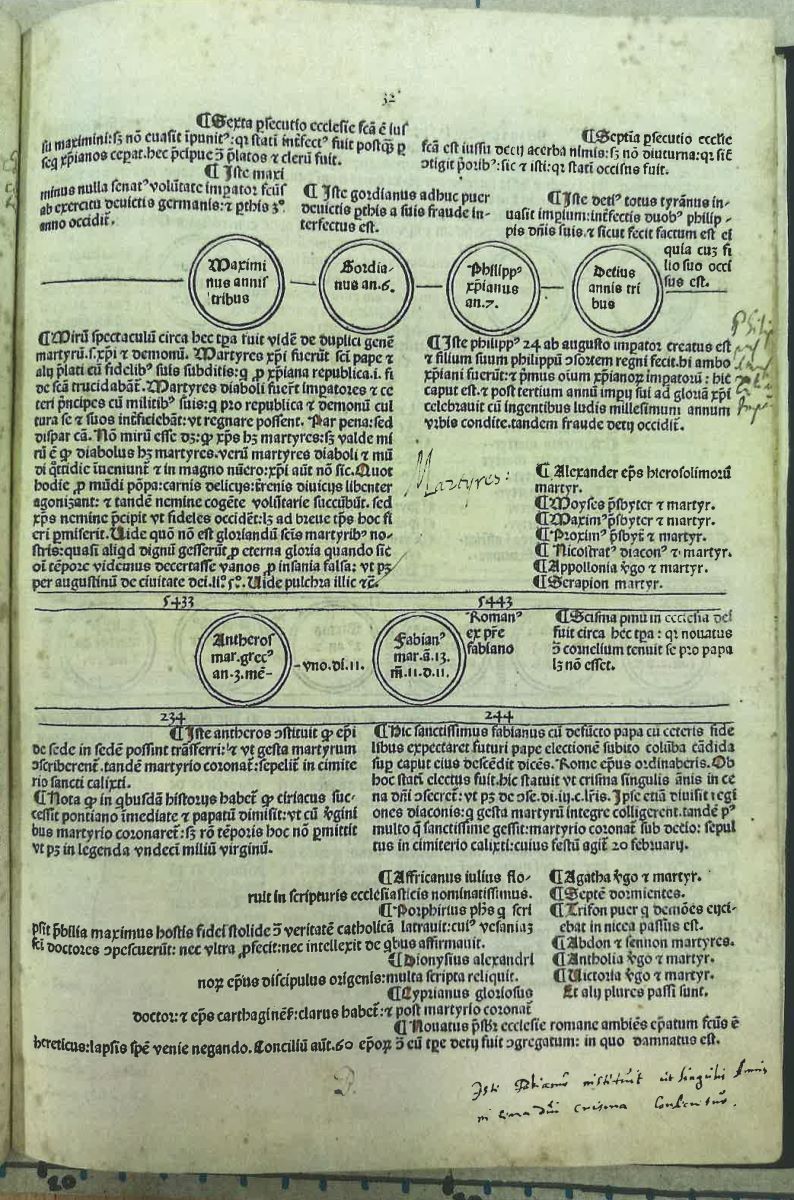 32
¶Sexta ꝑsecutio ecclesie scā ē ius
su maximini:sꝫ nō euasit īpunitꝰ:qꝛ statī īterfectꝰ fuit postqꝫ ꝑ
seq xp̄ianos cepat.hec p̄cipue ꝯ p̄latos ⁊ clerū fuit.
¶Septīa ꝑsecutio ecclīe
scā est iussu decij acerba nimis:sꝫ nō diuturna:qꝛ sic̄
ꝯtigit p̄orib9:sic ⁊ isti:qꝛ stati occisus fuit.
¶Iste maxi
minus nulla senatꝰ volūtate impator fcūs
ab exercitu deuictis germanis:⁊ ꝑthis 3º
anno occidit᷑.
¶Iste gordianus adhuc puer
deuictis ꝑthis a suis fraude in-
terfectus est.
¶Iste detiꝰ totus tyrānus in-
uasit impium:int̄fectis duobꝰ philip-
pis dn̄is suis.⁊ sicut fecit factum est ei
quia cuꝫ fi
lio suo occi
sus est.
Maximi
nus annis
tribus
Gordia-
nus an.6.
Philippꝰ
xp̄ianus
an.7.
Detius
annis tri
bus
¶Mirū spectaculū circa hec tp̄a fuit vidē de duplici genē
martyrū.s.xp̄i ⁊ demonū. Martyres xp̄i fuerūt sci pape ⁊
alij p̄lati cū fidelibꝰ suis subditis:ꝙ ꝓ xp̄iana republica.i.fi
de scā trucidabāt᷑.Martyres diaboli fuert̄ imꝑatores ⁊ ce
teri p̄ncipes cū militibꝰ suis:ꝗ pro republica ⁊ demonū cul
tura se ⁊ suos int̄ficiebāt:vt regnare possent. Par pena:sed
dispar cā. Nō mirū esse dꝫ:ꝙ xp̄s hꝫ martyres:sꝫ valde mi
rū ē ꝙ diabolus hꝫ martyres.verū martyres diaboli ⁊ mū
di q̄ttidie iueniunt᷑ ⁊ in magno nūero:xp̄i aūt nō sic.Quot
hodie ꝓ mūdi pōpa:carnis delicijs:t̄renis diuicijs libenter
agonizant:⁊ tandē nemine cogēte volūtarie succūbūt.sed
xp̄s nemine p̄cipit vt fideles occidēt᷑:lꝫ ad breue tp̄s hoc fi
eri ꝑmiserit.Uide quō nō est gloriandū scīs martyribꝰ no-
stris:quasi aliqd dignū gesserūt ꝓ eterna gloria quando sic̄
oī tēpore videmus decertasse vanos ꝓ insania falsa: vt pꝫ
per augustinū de ciuitate dei.li.º5º.Uide pulchra illic ⁊c̄.
¶Iste philippꝰ 24 ab augusto impator creatus est
⁊ filium suum philippū ꝯsortem regni fecit.hi ambo
xp̄iani fuerūt:⁊ p̄mus oīum xp̄ianoꝝ impatorū:hic
caput est.⁊ post tertium annū impij sui ad gloriā xp̄i
celebrauit cū ingentibus ludis millesimum annum
vrbis condite.tandem fraude detij occidit᷑.
Martyres:
¶Alexander ep̄s hierosolimorū
martyr.
¶Moyses p̄sbyter ⁊ martyr.
¶Maximꝰ p̄sbyter ⁊ martyr.
¶Proximꝰ p̄sbyt̄ ⁊ martyr.
¶Nicostratꝰ diaconꝰ ⁊ martyr.
¶Appollonia v̄go ⁊ martyr.
¶Serapion martyr.
5433
5443
Antheros
mar.grecꝰ
an.3.mē-
-vno.di.11.
Fabianꝰ
mar.ā.13.
m̄.11.d.11.
Romanꝰ
ex pr̄e
fabiano
¶Scisma pmū in ecclesia dei
fuit circa hec tp̄a: qꝛ nouatus
ꝯ cornelium tenuit se pro papa
lꝫ nō esset.
234
244
¶Iste antheros ꝯstituit ꝙ ep̄i
de sede in sedē possint trāsferri:⁊ vt gesta martyrum
ꝯscriberent᷑.tandē martyrio coronat᷑:sepelit᷑ in cimite
rio sancti calixti.
¶Nota ꝙ in qbusdā historijs habet᷑ ꝙ ciriacus suc-
cessit pontiano imediate ⁊ papatū dimisit:vt cū v̄gini
bus martyrio coronaret᷑:sꝫ rō tēporis hoc nō ꝑmittit
vt pꝫ in legenda vndeci miliū virginū.
¶Hic sanctissimus fabianus cū defūcto papa cū ceteris fide
libus expectaret futuri pape electionē subito colūba cādida
suꝑ caput eius descēdit dicēs. Rome ep̄us ordinaberis.Ob
hoc stati electus fuit.hic statuit vt crisma singulis ānis in ce
na dn̄i ꝯsecret᷑: vt pꝫ de ꝯse.di.iij.c.lr̄is. Ipse etiā diuisit regi
ones diaconis:ꝗ gesta martyrū integre colligerent.tandē pꝰ
multo q̄ sanctissime gessit:martyrio coronat᷑ sub decio: sepul
tus in cimiterio calixti:cuius festū agit᷑ 20 february.
¶Affricanus iulius flo-
ruit in scripturis ecclesiasticis nominatissimus.
¶Porphirius ph̄s ꝗ scri
psit p̄bilia maximus hostis fidei stolide ꝯ veritatē catholicā latrauit:cuiꝰ vesaniaꝫ
sci doctores ꝯpescuerūt: nec vltra ꝓfecit:nec intellexit de qbus affirmauit.
¶Dionysius alexandri
noꝝ ep̄us discipulus origenis:multa scripta reliquit.
¶Cyprianus gloriosus
doctor:⁊ ep̄s carthaginēs̄:clarus habet᷑:⁊ post martyrio coronat᷑
¶Agatha v̄go ⁊ martyr.
¶Septē dormientes.
¶Trifon puer ꝗ demōes eijci-
ebat in nicea passus est.
¶Abdon ⁊ sennon martyres.
¶Antholia v̄go ⁊ martyr.
¶Uictoria v̄go ⁊ martyr.
Et alij plures passi sunt.
¶Nouatus p̄sbr̄ ecclesie romane ambiēs ep̄atum fcūs ē
hereticus:lapsis spē venie negando. Conciliū aūt.60 ep̄oꝝ ꝯ eū tp̄e detij fuit ꝯgregatum: in quo damnatus est.
instituit ut singulis
crisma
20